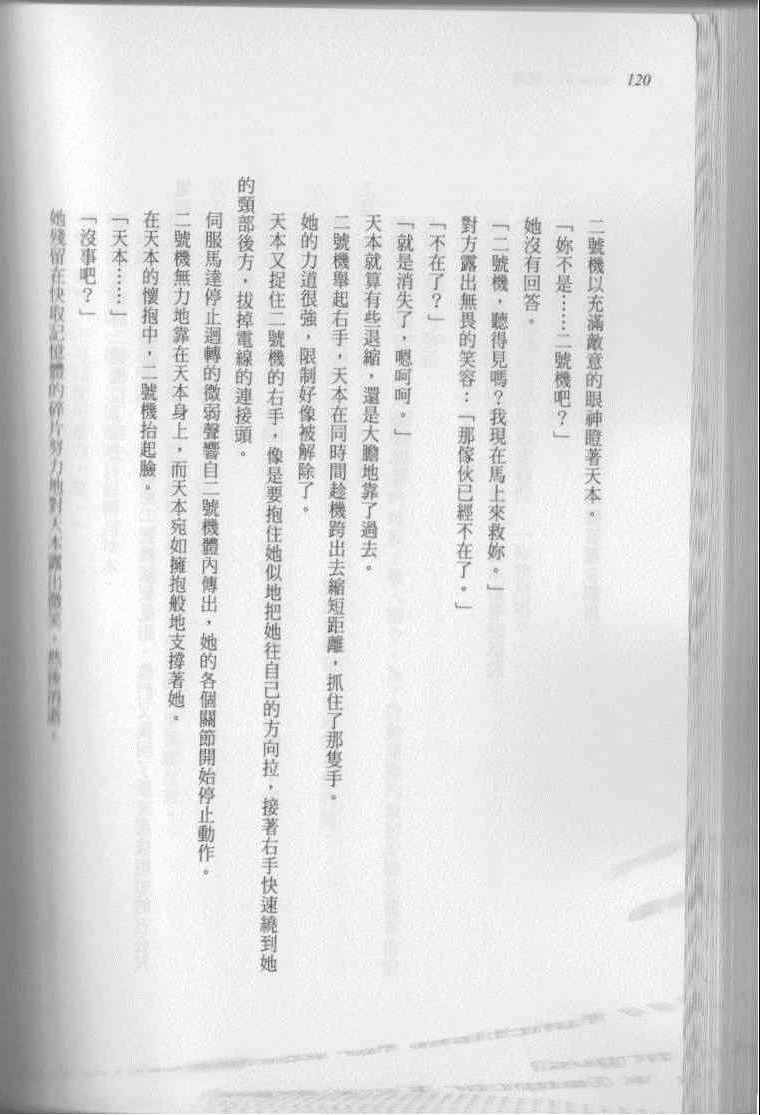 120
二號機以充滿敵意的眼神瞪著天本。
「妳不是……二號機吧？」
她沒有回答。
「二號機，聽得見嗎？我現在馬上來救妳。」
對方露出無畏的笑容：「那傢伙已經不在了。」
「不在了？」
「就是消失了，嗯呵呵。」
天本就算有些退縮，還是大膽地靠了過去。
二號機舉起右手，天本在同時間趁機跨出去縮短距離，抓住了那隻手。
她的力道很強，限制好像被解除了。
天本又捉住二號機的右手，像是要抱住她似地把她往自己的方向拉，接著右手快速繞到她
的頸部後方，拔掉電線的連接頭。
伺服馬達停止迴轉的微弱聲響自二號機體內傳出，她的各個關節開始停止動作。
二號機無力地靠在天本身上，而天本宛如擁抱般地支撐著她。
在天本的懷抱中，二號機抬起臉。
「天本……」
「沒事吧？」
她殘留在快取記憶體的碎片努力地對天本露出微笑，然後消逝。